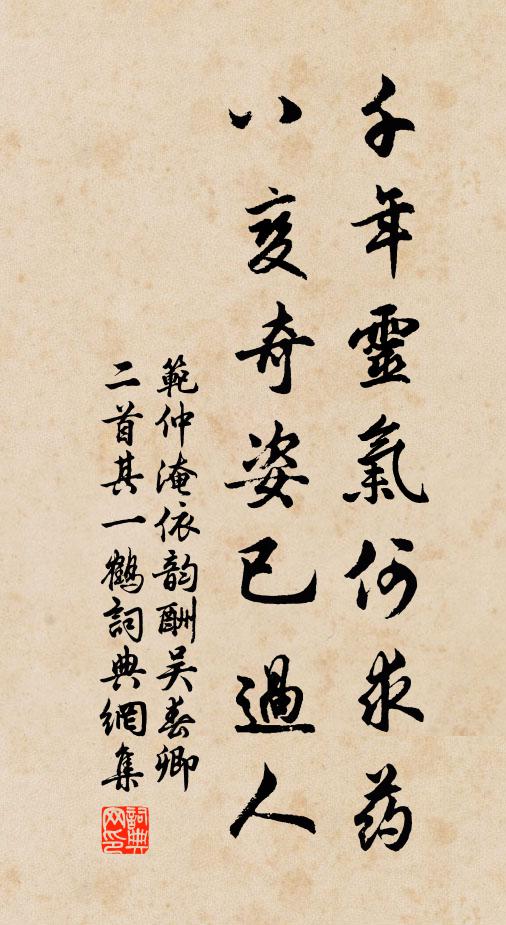 千年靈氣何求药
八变奇姿已過人
範仲淹依韵酬吴春卿
二首其一鶴詞典網集
詞典网印